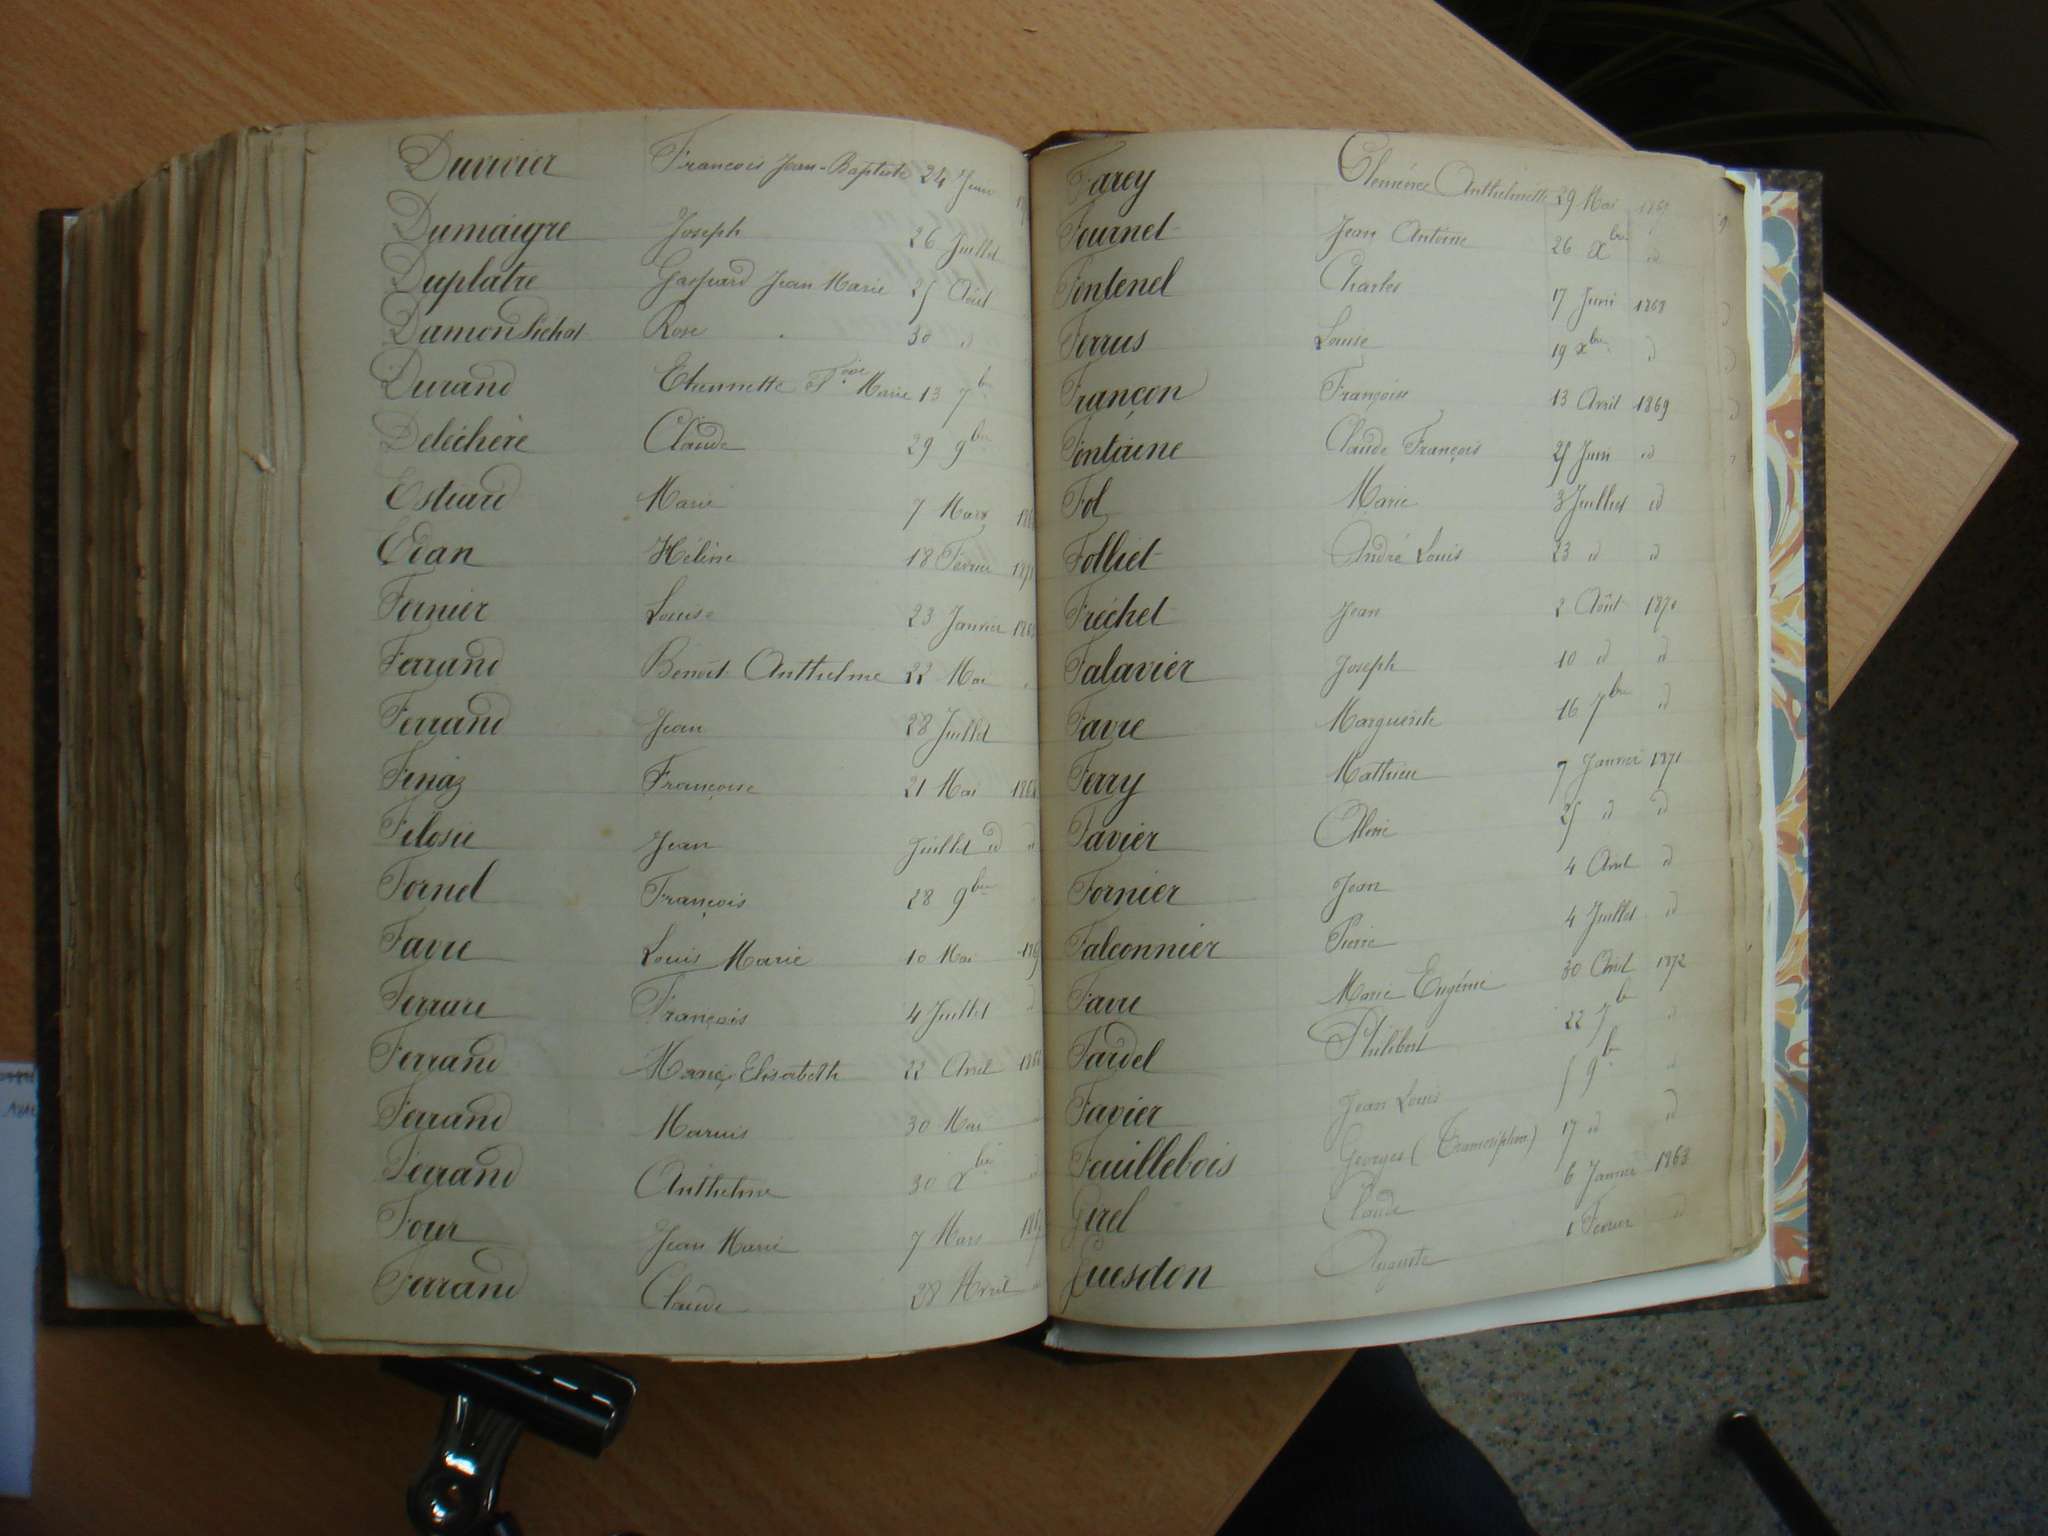 Duvivier François Jean-Baptiste 24 Juin
Dumaigre Joseph 26 Juillet
Duplatre Gaspard Jean Marie 25 Août
Dumont Rose 30 d
Durand Etiennette Marie 13 7b
Deléchère Claude 29 9bre
Marie 7 Mars
Hélène 18 Février
Fernier Louise 23 Janvier
Ferrand Benoît Anthelme 22 Mai
Ferrand Jean 28 Juillet
Fenaz Françoise 21 Mai
Jean Juillet id
Fornel François 28 9bre
Favre Louis Marie 10 Mai
Ferrare François 4 Juillet
Ferrand Marie Elisabeth 22 Avril
Ferrand Marius 30 Mai
Ferrand Anthelme 30 Xbre
Four Jean Marie 7 Mars
Ferrand Claude 28 Avril
Farey Clémence Anthelmette 29 Mai 1867
Fournet Jean Antoine 26 Xbre id
Fontenel Charles 17 Juin 1868
Ferrus Louise 19 Xbre d
Françon Françoise 13 Avril 1869
Fontaine Claude François 25 Juin id
Fol Marie 3 Juillet id
Folliet André Louis 23 d d
Fréchet Jean 2 Août 1870
Falavier Joseph 10 d d
Favre Marguerite 16 7bre d
Ferry Mathieu 7 Janvier 1871
Favier 25 d d
Fornier Jean 4 Avril d
Falconnier Pierre 4 Juillet d
Favre Marie Eugénie 30 Avril 1872
Fardel Philibert 22 7b
Favier Jean Louis 5 9b
Feuillebois Georges (Transcription) 17 d d
Girel Claude 6 Janvier 1863
Guesdon Auguste 1 Février d